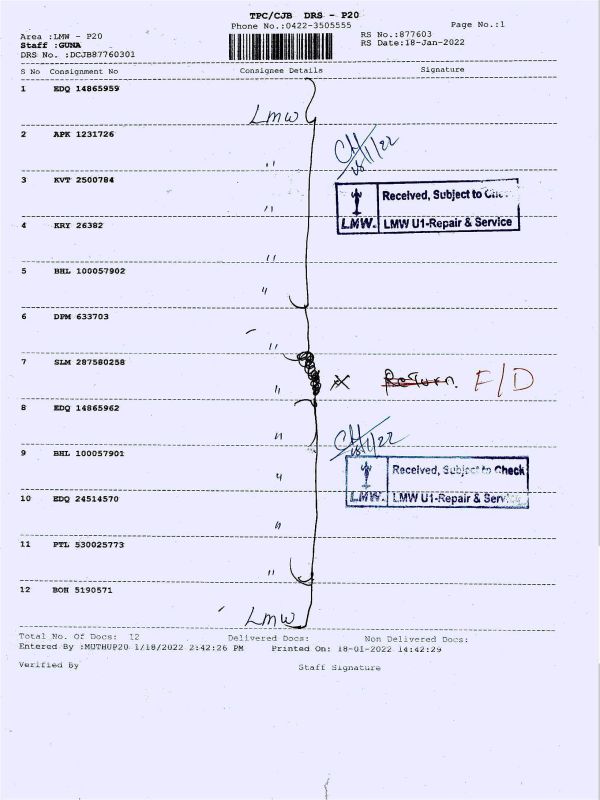 TPC/CJB DRS - P20
Phone No.:0422-3505555 Page No.:1
Area :LMW - P20 RS No.:877603
Staff :GUNA RS Date:18-Jan-2022
DRS No. :DCJB87760301
S No Consignment No Consignee Details Signature
1 EDQ 14865959
LMW
2 APK 1231726
18/1/22
"
3 KVT 2500784
Received, Subject to
"
LMW. LMW U1-Repair & Service
4 KRY 26382
"
5 BHL 100057902
"
6 DPM 633703
"
7 SLM 287580258
" x Return. F/D
8 EDQ 14865962
" 18/1/22
9 BHL 100057901
Received, Subject to Check
"
LMW. LMW U1-Repair & Service
10 EDQ 24514570
"
11 PTL 530025773
"
12 BOH 5190571
LMW
Total No. Of Docs: 12 Delivered Docs: Non Delivered Docs:
Entered By :MUTHUP20 1/18/2022 2:42:26 PM Printed On: 18-01-2022 14:42:29
Verified By Staff Signature